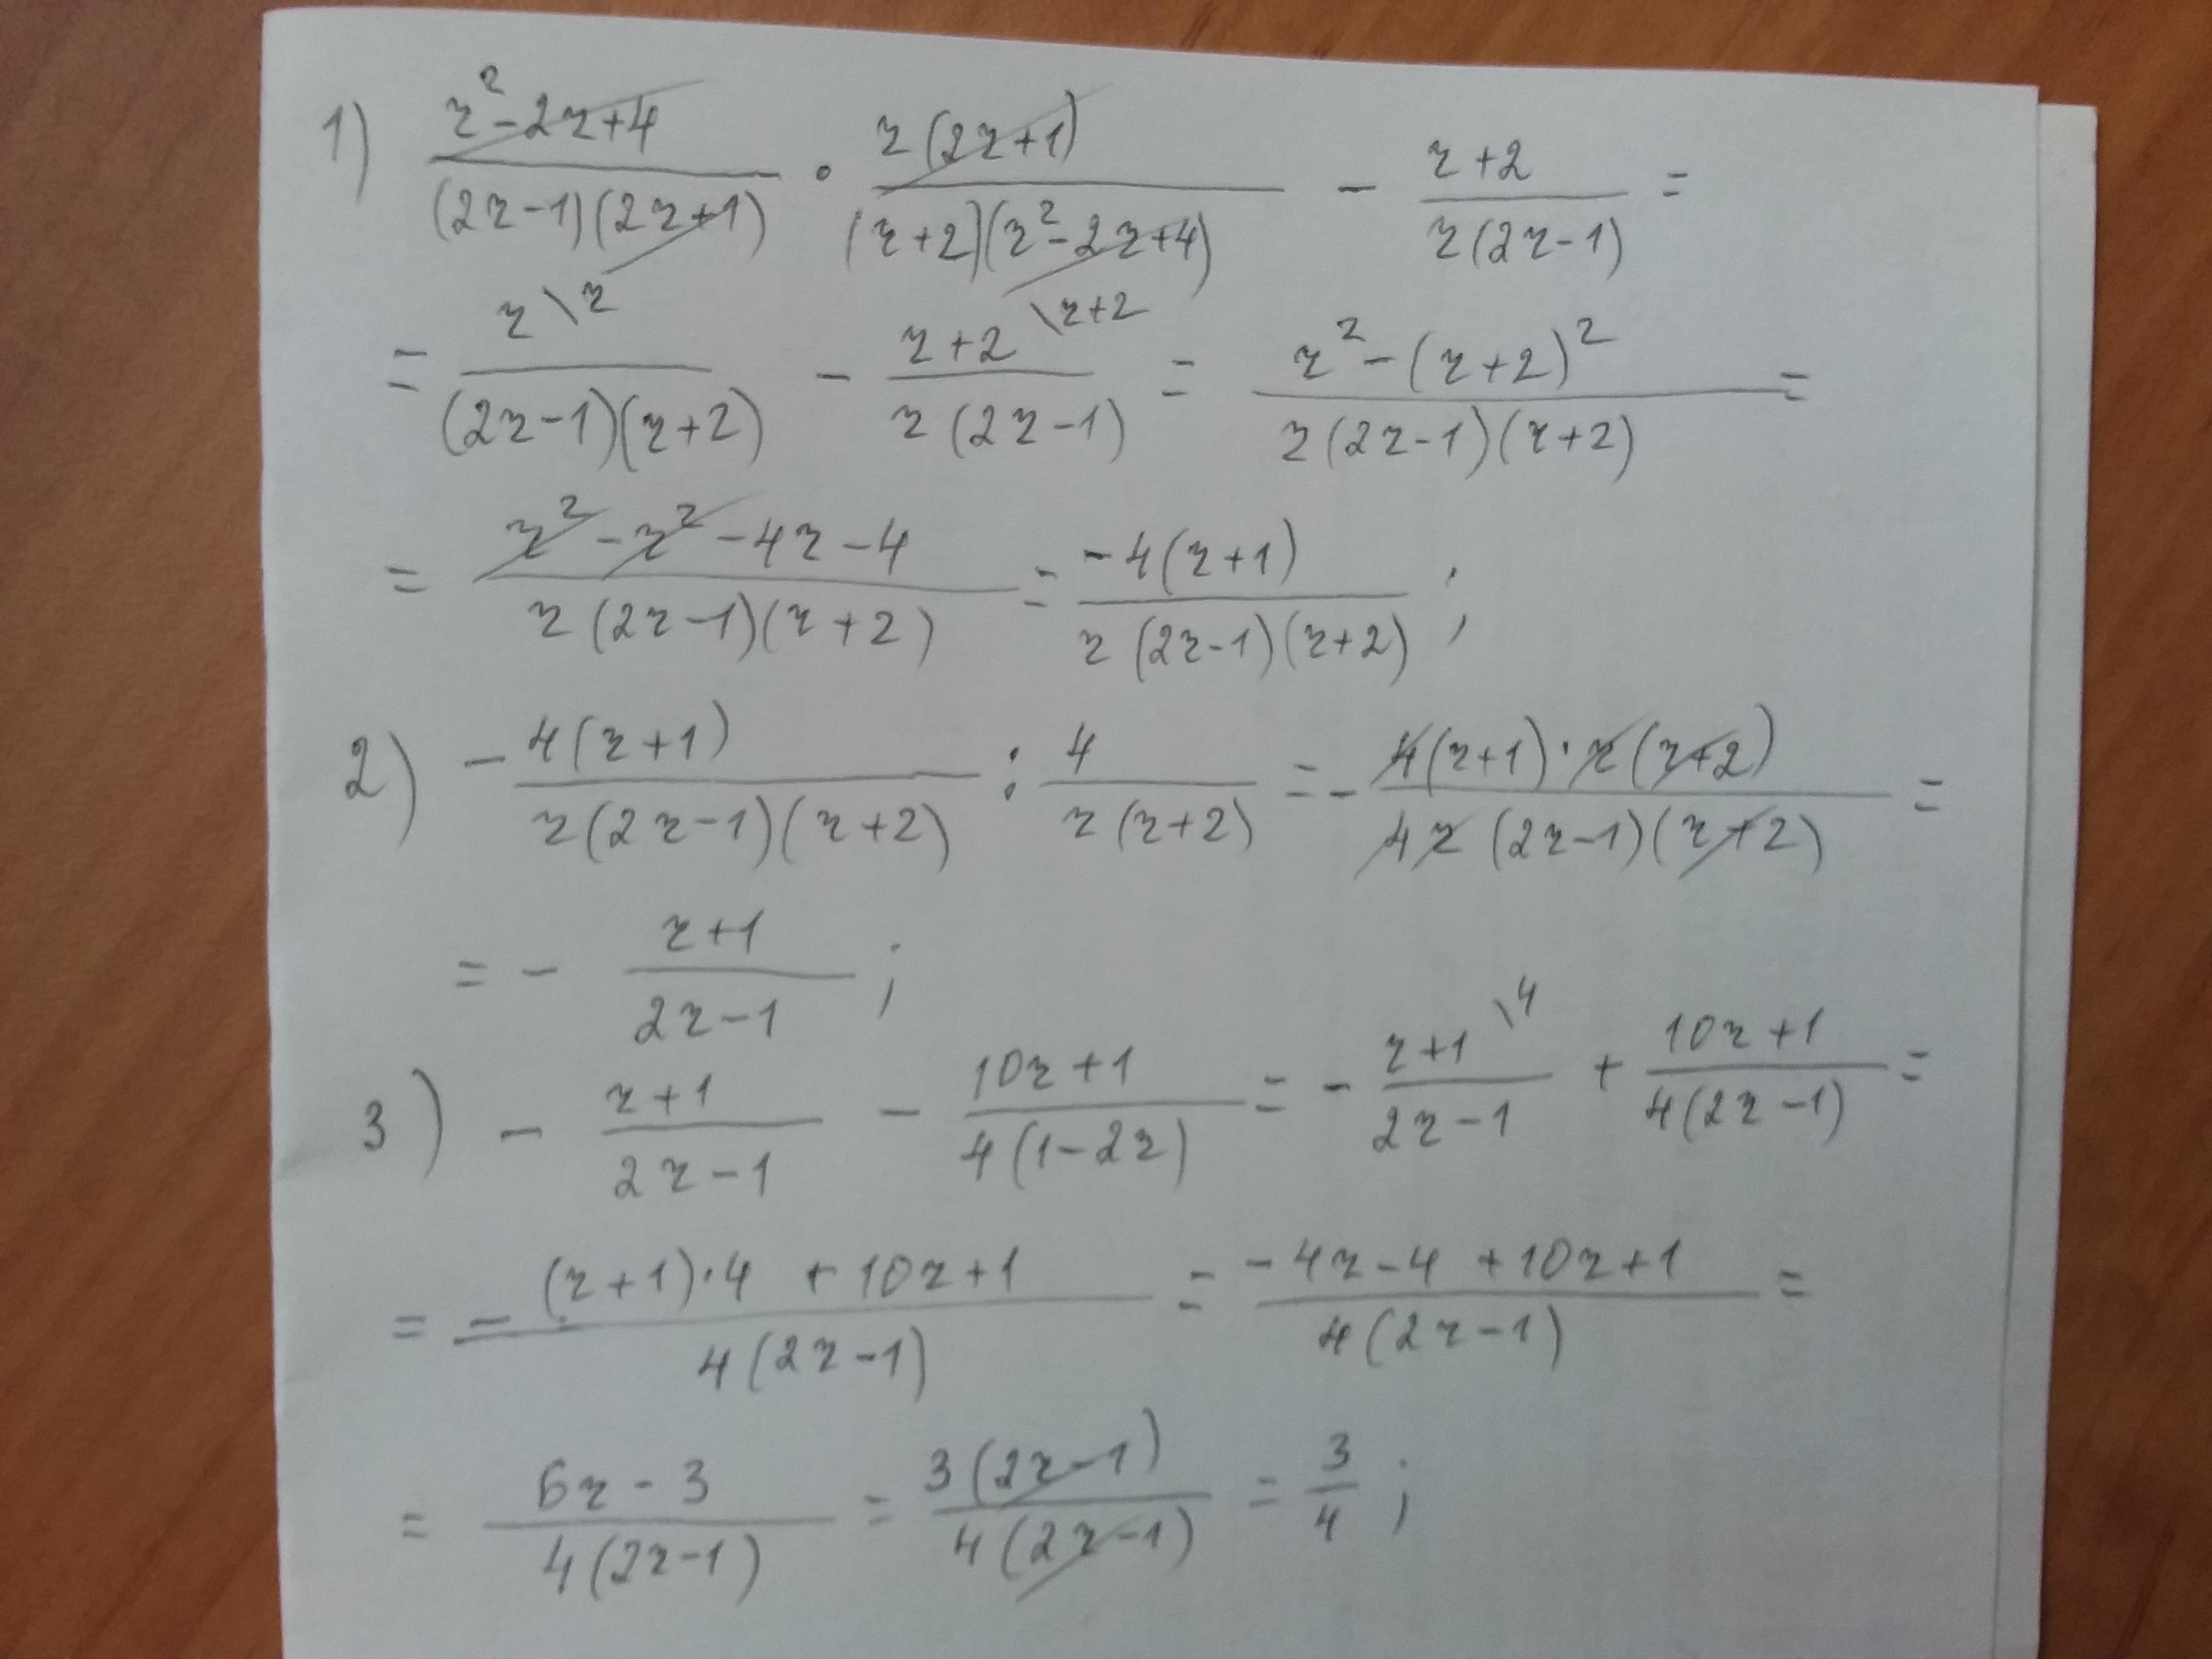 1) (z²-2z+4)/((2z-1)(2z+1)) · (z(2z+1))/((z+2)(z²-2z+4)) - (z+2)/(z(2z-1)) =
= (z \z)/((2z-1)(z+2)) - (z+2 \z+2)/(z(2z-1)) = (z²-(z+2)²)/(z(2z-1)(z+2)) =
= (z²-z²-4z-4)/(z(2z-1)(z+2)) = (-4(z+1))/(z(2z-1)(z+2)) ;
2) - (4(z+1))/(z(2z-1)(z+2)) : 4/(z(z+2)) = - (4(z+1)·z(z+2))/(4z(2z-1)(z+2)) =
= - (z+1)/(2z-1) ;
3) - (z+1)/(2z-1) - (10z+1)/(4(1-2z)) = - (z+1 \4)/(2z-1) + (10z+1)/(4(2z-1)) =
= (-(z+1)·4+10z+1)/(4(2z-1)) = (-4z-4+10z+1)/(4(2z-1)) =
= (6z-3)/(4(2z-1)) = (3(2z-1))/(4(2z-1)) = 3/4 ;